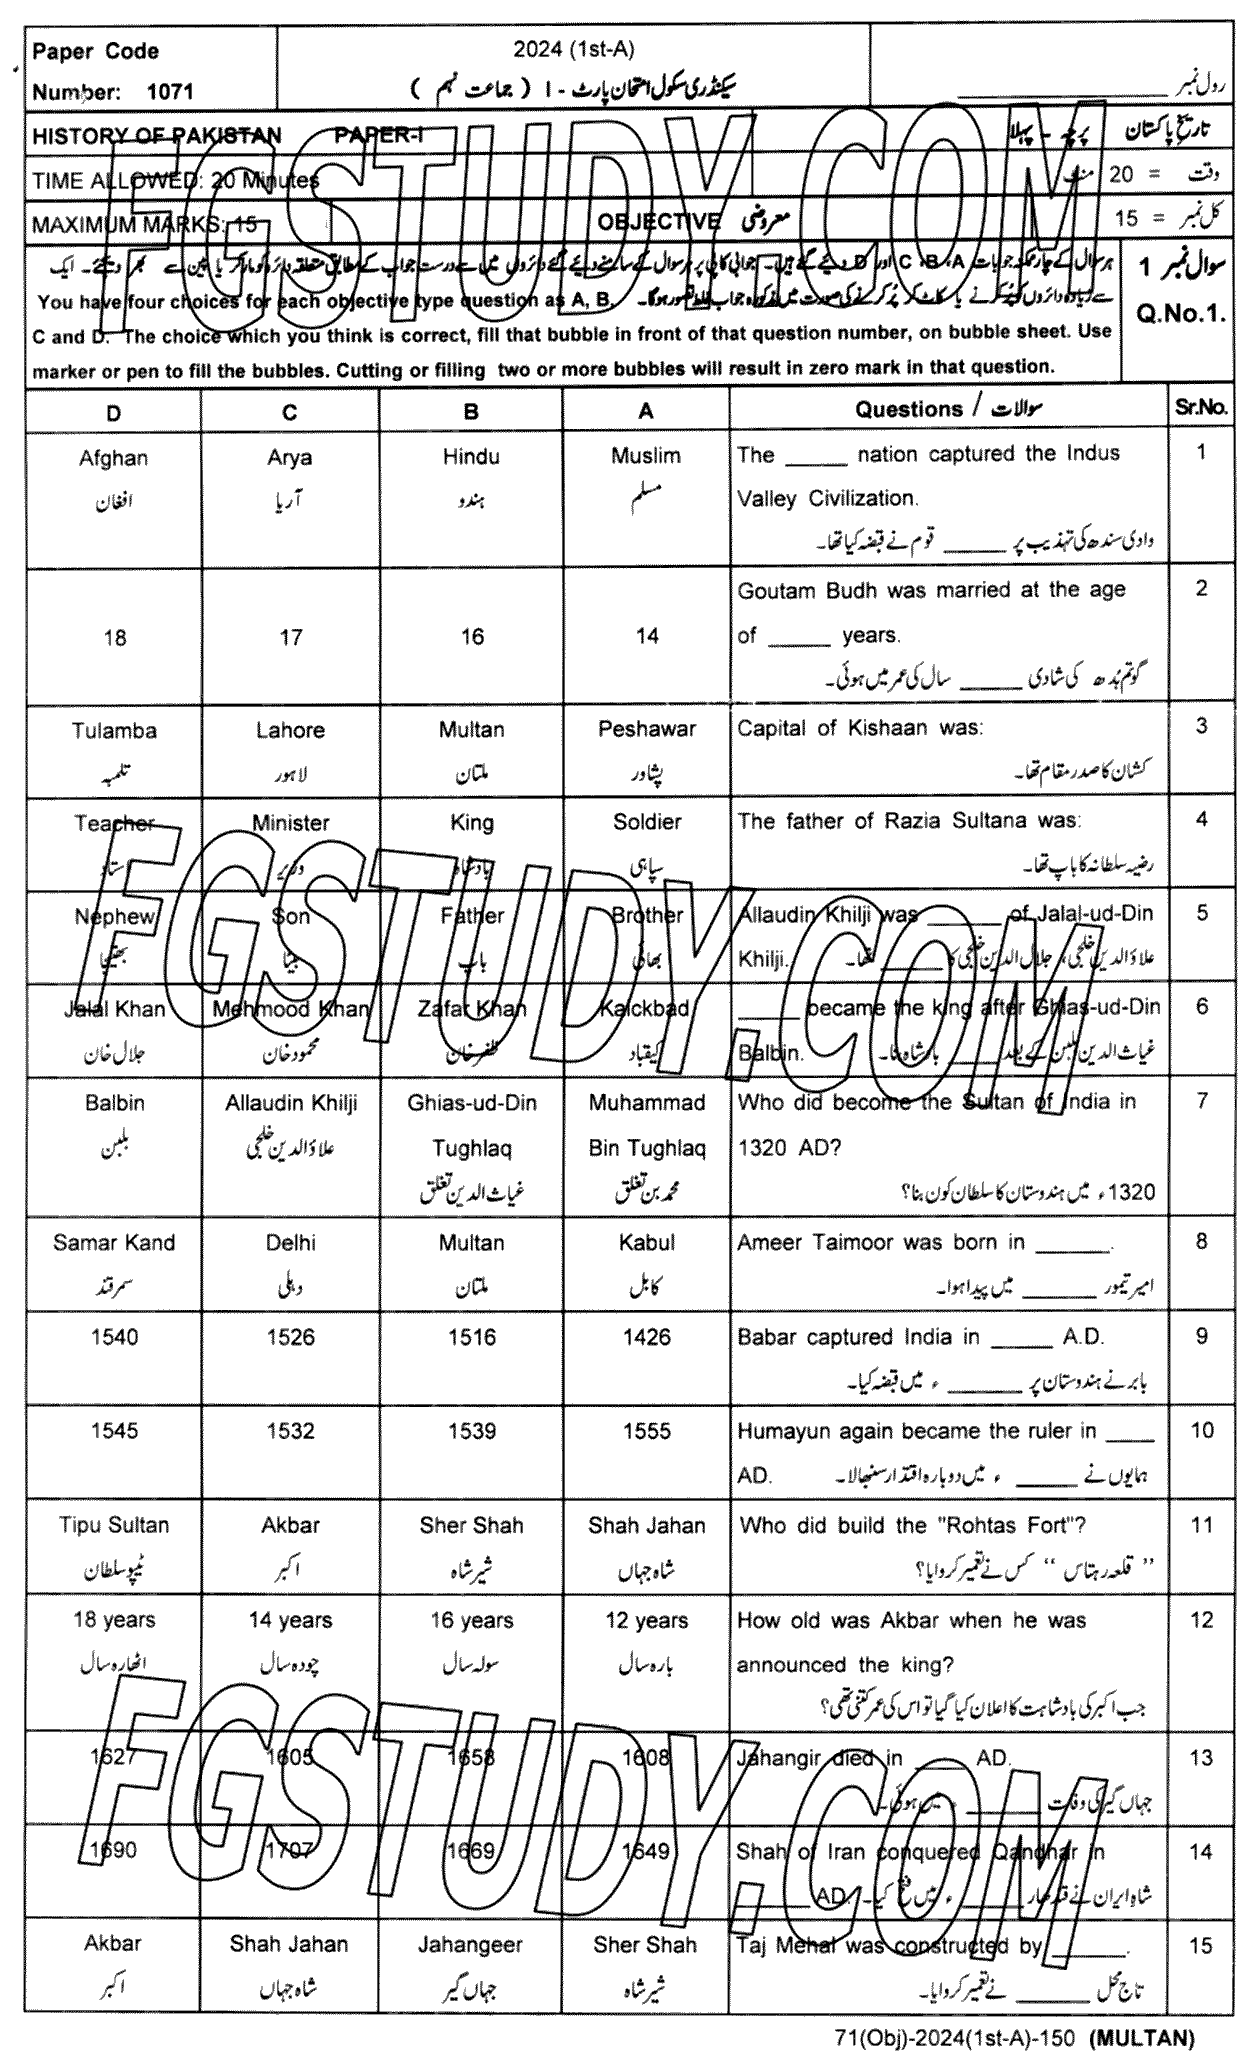 Paper Code
Number: 1071
2024 (1st-A)
سیکنڈری سکول امتحان پارٹ - I ( جماعت نہم )
رول نمبر ____________
HISTORY OF PAKISTAN PAPER-I
تاریخِ پاکستان پرچہ - پہلا
TIME ALLOWED: 20 Minutes
وقت = 20 منٹ
MAXIMUM MARKS: 15
OBJECTIVE معروضی
کل نمبر = 15
سوال نمبر 1
Q.No.1.
ہر سوال کے چار ممکنہ جوابات A، B، C اور D دیئے گئے ہیں۔ جوابی کاپی پر ہر سوال کے سامنے دیئے گئے دائروں میں سے درست جواب کے مطابق متعلقہ دائرہ کو مارکر یا پین سے بھر دیجئے۔ ایک
سے زیادہ دائروں کو پُر کرنے یا کاٹ کر پُر کرنے کی صورت میں مذکورہ جواب غلط تصور ہوگا۔ You have four choices for each objective type question as A, B,
C and D. The choice which you think is correct, fill that bubble in front of that question number, on bubble sheet. Use
marker or pen to fill the bubbles. Cutting or filling two or more bubbles will result in zero mark in that question.
D C B A Questions / سوالات Sr.No.
Afghan Arya Hindu Muslim The _____ nation captured the Indus 1
Valley Civilization.
افغان آریا ہندو مسلم
وادی سندھ کی تہذیب پر _____ قوم نے قبضہ کیا تھا۔
Goutam Budh was married at the age 2
18 17 16 14 of _____ years.
گوتم بُدھ کی شادی _____ سال کی عمر میں ہوئی۔
Tulamba Lahore Multan Peshawar Capital of Kishaan was: 3
تلمبہ لاہور ملتان پشاور کشان کا صدر مقام تھا۔
Teacher Minister King Soldier The father of Razia Sultana was: 4
استاد وزیر بادشاہ سپاہی رضیہ سلطانہ کا باپ تھا۔
Nephew Son Father Brother Allaudin Khilji was ______ of Jalal-ud-Din 5
Khilji.
بھتیجا بیٹا باپ بھائی علاؤالدین خلجی، جلال الدین خلجی کا _____ تھا۔
Jalal Khan Mehmood Khan Zafar Khan Kaickbad _____ became the king after Ghias-ud-Din 6
Balbin.
جلال خان محمود خان ظفر خان کیقباد غیاث الدین بلبن کے بعد _____ بادشاہ بنا۔
Balbin Allaudin Khilji Ghias-ud-Din Muhammad Who did become the Sultan of India in 7
Tughlaq Bin Tughlaq 1320 AD?
بلبن علاؤالدین خلجی غیاث الدین تغلق محمد بن تغلق 1320ء میں ہندوستان کا سلطان کون بنا؟
Samar Kand Delhi Multan Kabul Ameer Taimoor was born in ______. 8
سمرقند دہلی ملتان کابل امیر تیمور ______ میں پیدا ہوا۔
1540 1526 1516 1426 Babar captured India in _____ A.D. 9
بابر نے ہندوستان پر ______ ء میں قبضہ کیا۔
1545 1532 1539 1555 Humayun again became the ruler in ____ 10
AD. ہمایوں نے _____ ء میں دوبارہ اقتدار سنبھالا۔
Tipu Sultan Akbar Sher Shah Shah Jahan Who did build the "Rohtas Fort"? 11
ٹیپو سلطان اکبر شیر شاہ شاہ جہاں ’’ قلعہ رہتاس ‘‘ کس نے تعمیر کروایا؟
18 years 14 years 16 years 12 years How old was Akbar when he was 12
announced the king?
اٹھارہ سال چودہ سال سولہ سال بارہ سال
جب اکبر کی بادشاہت کا اعلان کیا گیا تو اس کی عمر کتنی تھی؟
1627 1605 1658 1608 Jahangir died in ____ AD. 13
جہاں گیر کی وفات ______ ء میں ہوئی۔
1690 1707 1669 1649 Shah of Iran conquered Qandhar in 14
______ AD. شاہِ ایران نے قندھار _____ ء میں فتح کیا۔
Akbar Shah Jahan Jahangeer Sher Shah Taj Mehal was constructed by ______. 15
اکبر شاہ جہاں جہاں گیر شیر شاہ تاج محل ______ نے تعمیر کروایا۔
71(Obj)-2024(1st-A)-150 (MULTAN)
FGSTUDY.COM
FGSTUDY.COM
FGSTUDY.COM